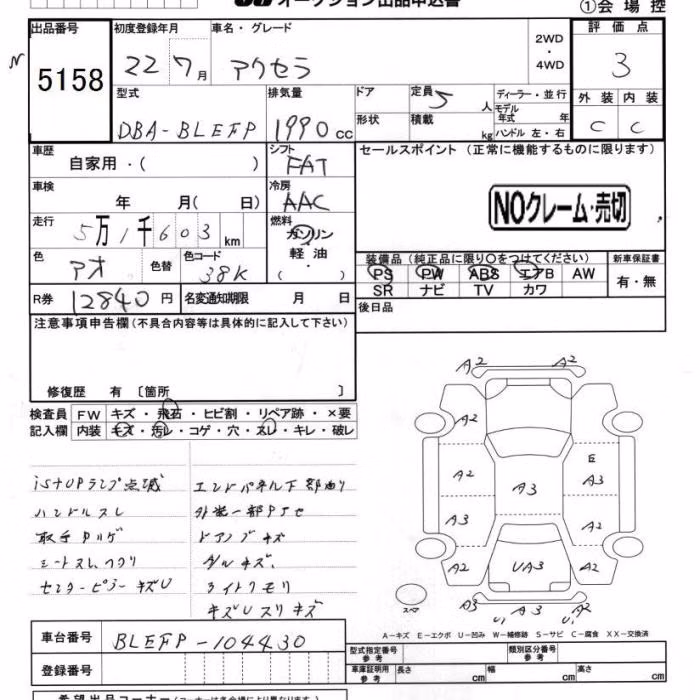 オークション出品申込書
①会場控
出品番号 初度登録年月 車名・グレード 2WD ・ 4WD 評価点
N 5158 22 7月 アクセラ 3
型式 排気量 ドア 定員 5人 ディーラー・並行 外装 内装
DBA-BLEFP 1990cc 形状 積載 kg モデル年式 年 ハンドル 左・右 C C
車歴 自家用・( ) シフト FAT セールスポイント (正常に機能するものに限ります)
車検 年 月( 日) 冷房 AAC NOクレーム・売切
走行 5万1千603km 燃料 ガソリン 軽油 ( ・ )
色 アオ 色替 色コード 38K 装備品(純正品に限り○をつけてください) 新車保証書
PS PW ABS エアB AW 有・無
SR ナビ TV カワ
R券 12840円 名変通知期限 月 日 後日品
注意事項申告欄(不具合内容等は具体的に記入して下さい)
修復歴 有 〔箇所 〕
検査員 FW キズ・飛石・ヒビ割・リペア跡・×要
記入欄 内装 キズ・汚レ・コゲ・穴・スレ・キレ・破レ
iSTOPランプ点滅 エンドパネル下部曲り
ハンドルスレ
ドアノブキズ
センターピラーキズU ライトクモリ
キズUスリキズ
A2 A2
A2
A2 E A3
A3
A3 A2
A2 UA3 A2
A3 U1 A2
スペア
A-キズ E-エクボ U-凹み W-補修跡 S-サビ C-腐食 XX-交換済
車台番号 BLEFP-104430 型式指定番号 参考 類別区分番号 参考
登録番号 車庫証明用 参考 長さ cm 幅 cm 高さ cm
希望出品コーナー